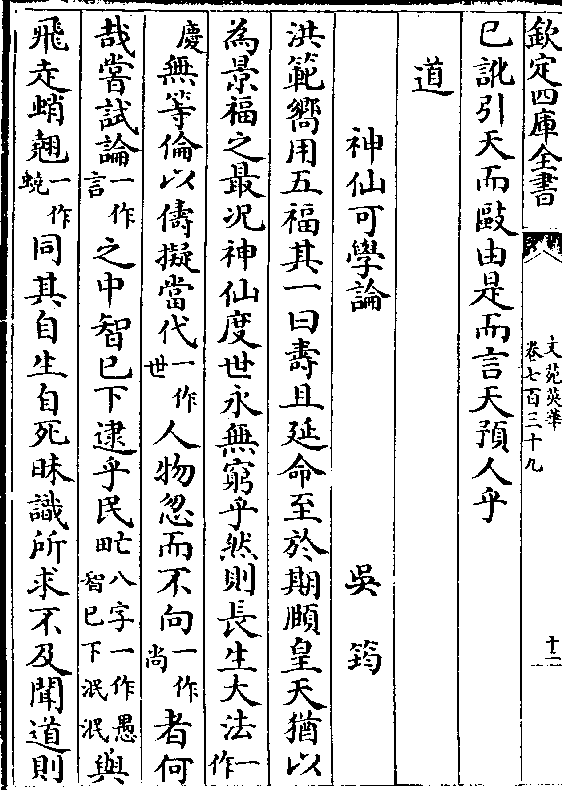 欽定四庫全書
文苑英華
卷七百三十九
十二
已訛引天而敺由是而言天預人乎
道
神仙可學論 吳筠
洪範嚮用五福其一曰壽且延命至於期頤皇天猶以
為景福之最况神仙度世永無窮乎然則長生大法一作
慶無等倫以儔擬當代一作世人物忽而不向一作尚者何
哉嘗試論一作言之中智已下逮乎民甿八字一作愚智已下泯泯與
飛走蛸翹一作蟯同其自生自死昧識所求不及聞道則